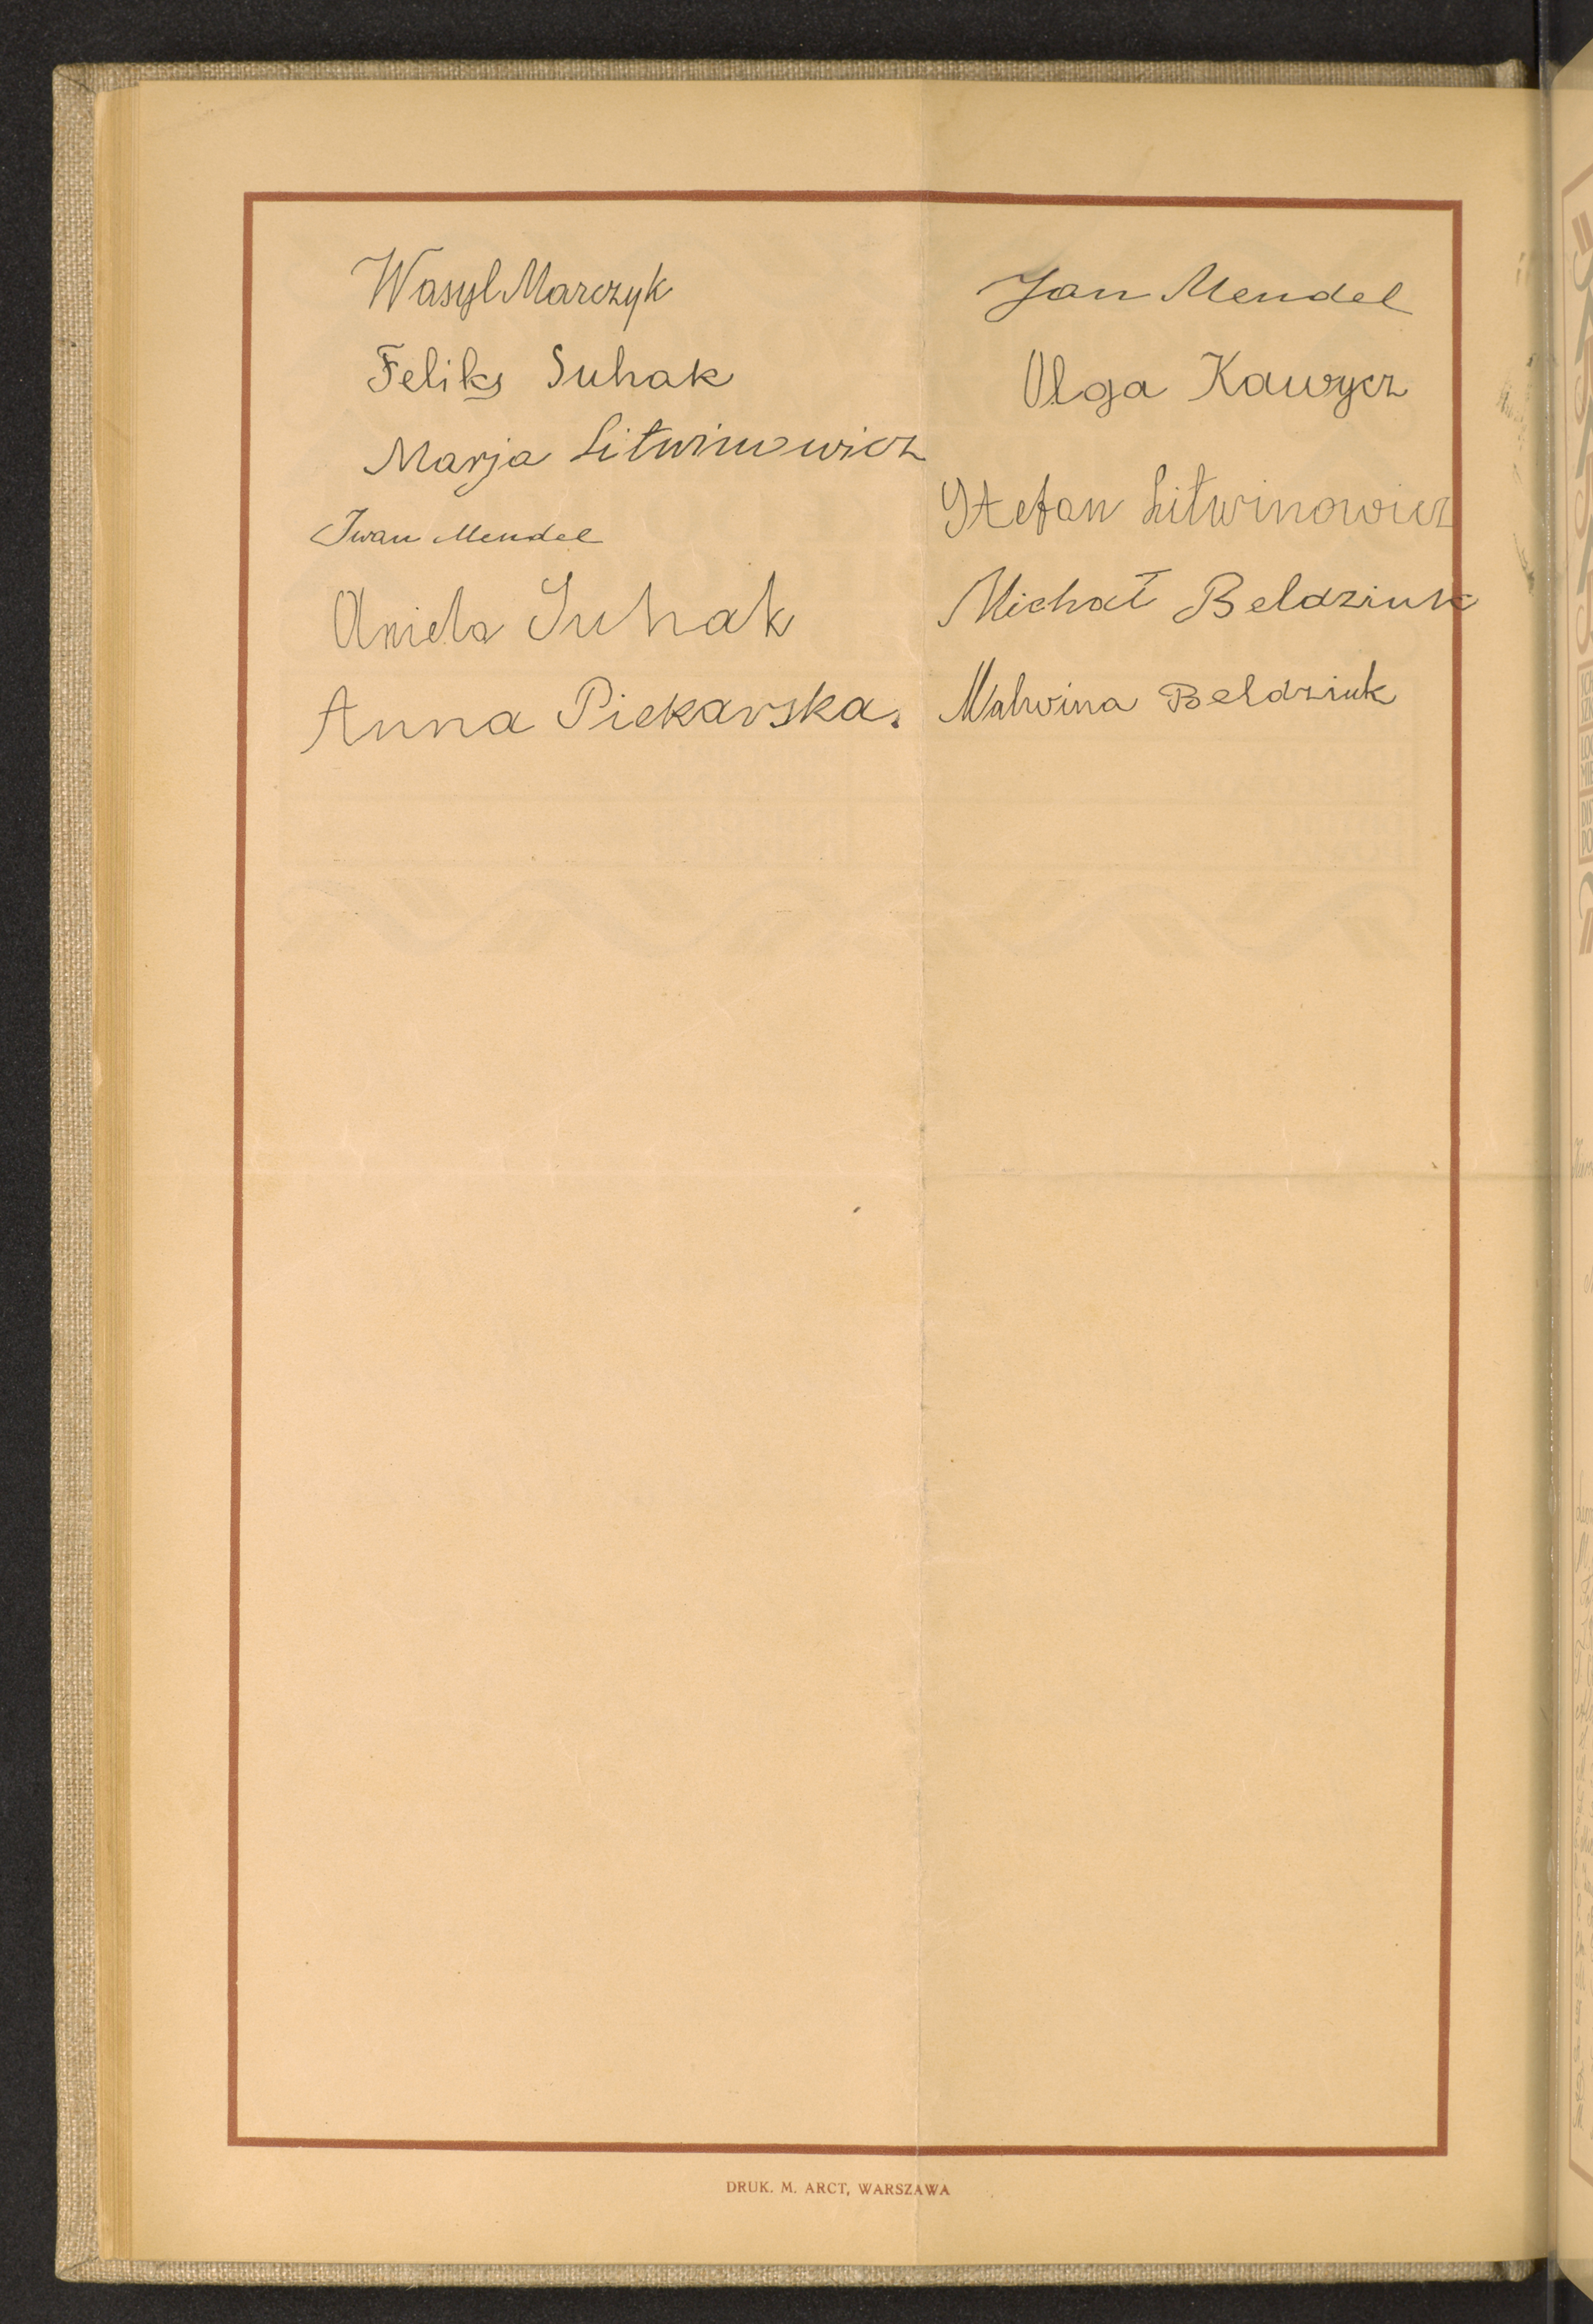 Wasyl Marczyk
Feliks Suhak
Marja Litwinowicz
Iwan Mendel
Aniela Suhak
Anna Piekarska.
Jan Mendel
Olga Kawycz
Stefan Litwinowicz
Michał Beldziuk
Malwina Beldziuk
DRUK. M. ARCT, WARSZAWA